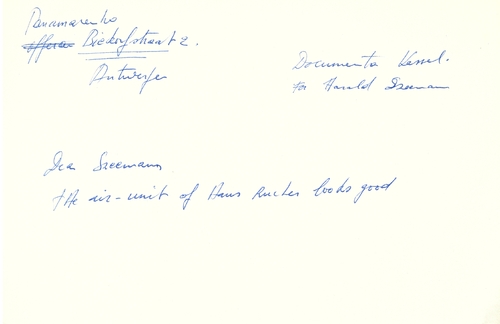 Panamarenko
Biekorfstraat 2.
Antwerpen
Documenta Kassel.
For Harald Szeemann
Dear Szeemann
the air-unit of Haus Rucker looks good